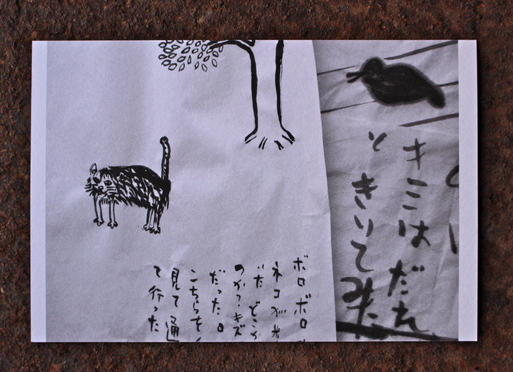 キミはだれ
と きいてみた
ボロボロ
ネコが
だ どこか
のか?キズ
だった。
こちらを
見て通
て行った